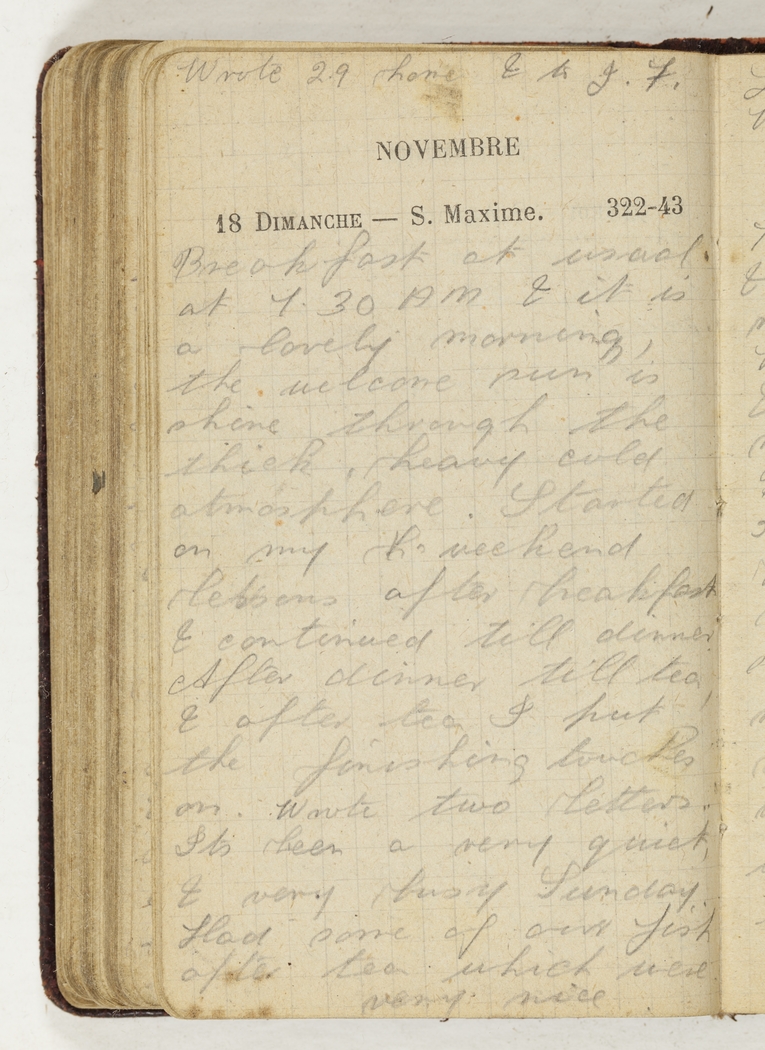 Wrote 29 home & to J. F.
NOVEMBRE
18 DIMANCHE — S. Maxime. 322-43
Breakfast at usual
at 7.30 AM & it is
a lovely morning,
the welcome sun is
shine through the
thick, heavy cold
atmosphere. Started
on my weekend
letters after breakfast
& continued till dinner
After dinner till tea,
& after tea I put
the finishing touches
on. Wrote two letters.
Its been a very quiet,
& very busy Sunday.
Had some of our fish
after tea which were
very nice